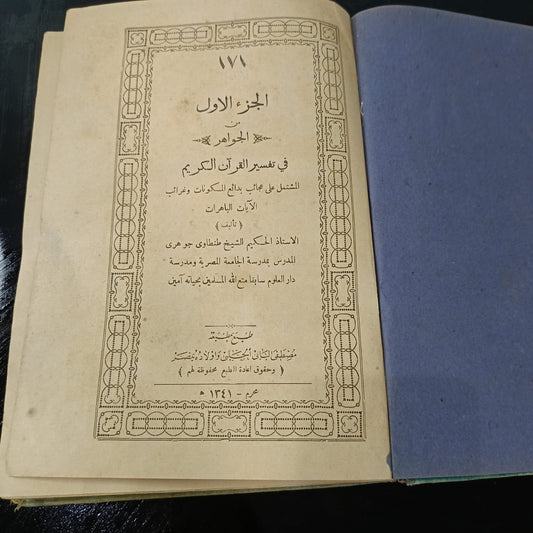 ١٧١
الجزء الاول
من
الجواهر
في تفسير القرآن الكريم
المشتمل على عجائب بدائع المكونات وغرائب
الآيات الباهرات
( تأليف )
الاستاذ الحكيم الشيخ طنطاوى جوهرى
المدرس بمدرسة الجامعة المصرية ومدرسة
دار العلوم سابقا متع الله المسلمين بحياته آمين
طبع بمطبعة
مصطفى البابى الحلبى واولاده بمصر
( وحقوق اعادة الطبع محفوظة لهم )
محرم - ١٣٤١ ه